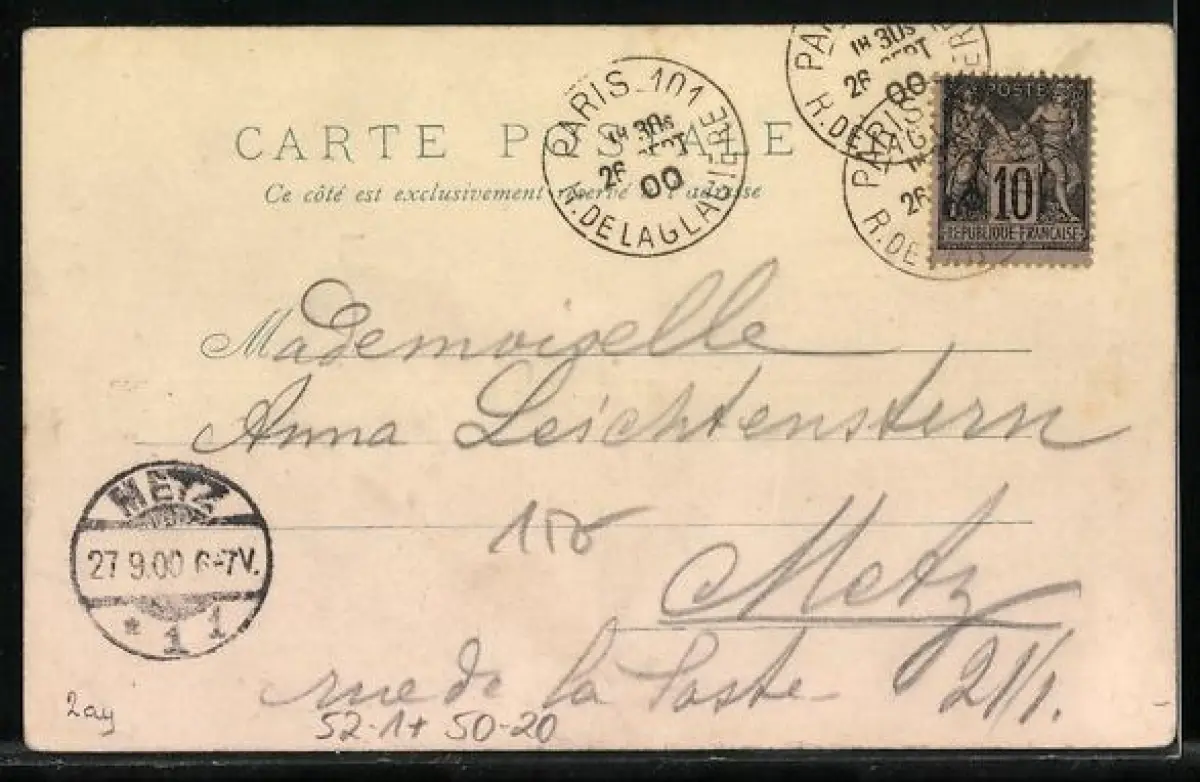 CARTE POSTALE
Ce côté est exclusivement réservé à l'adresse
PARIS_101
1H 30S
26 SEPT
00
R. DE LA GLACIERE
PARIS
1H 30S
26 SEPT
00
R. DE LA GLACIERE
PARIS
26
R. DE
POSTE
10
REPUBLIQUE FRANÇAISE
Mademoiselle
Anna Leichtenstern
Metz
rue de la Poste 21/1.
METZ
27.9.00 6-7V.
* 1 1
2ay
52-1+ 50-20